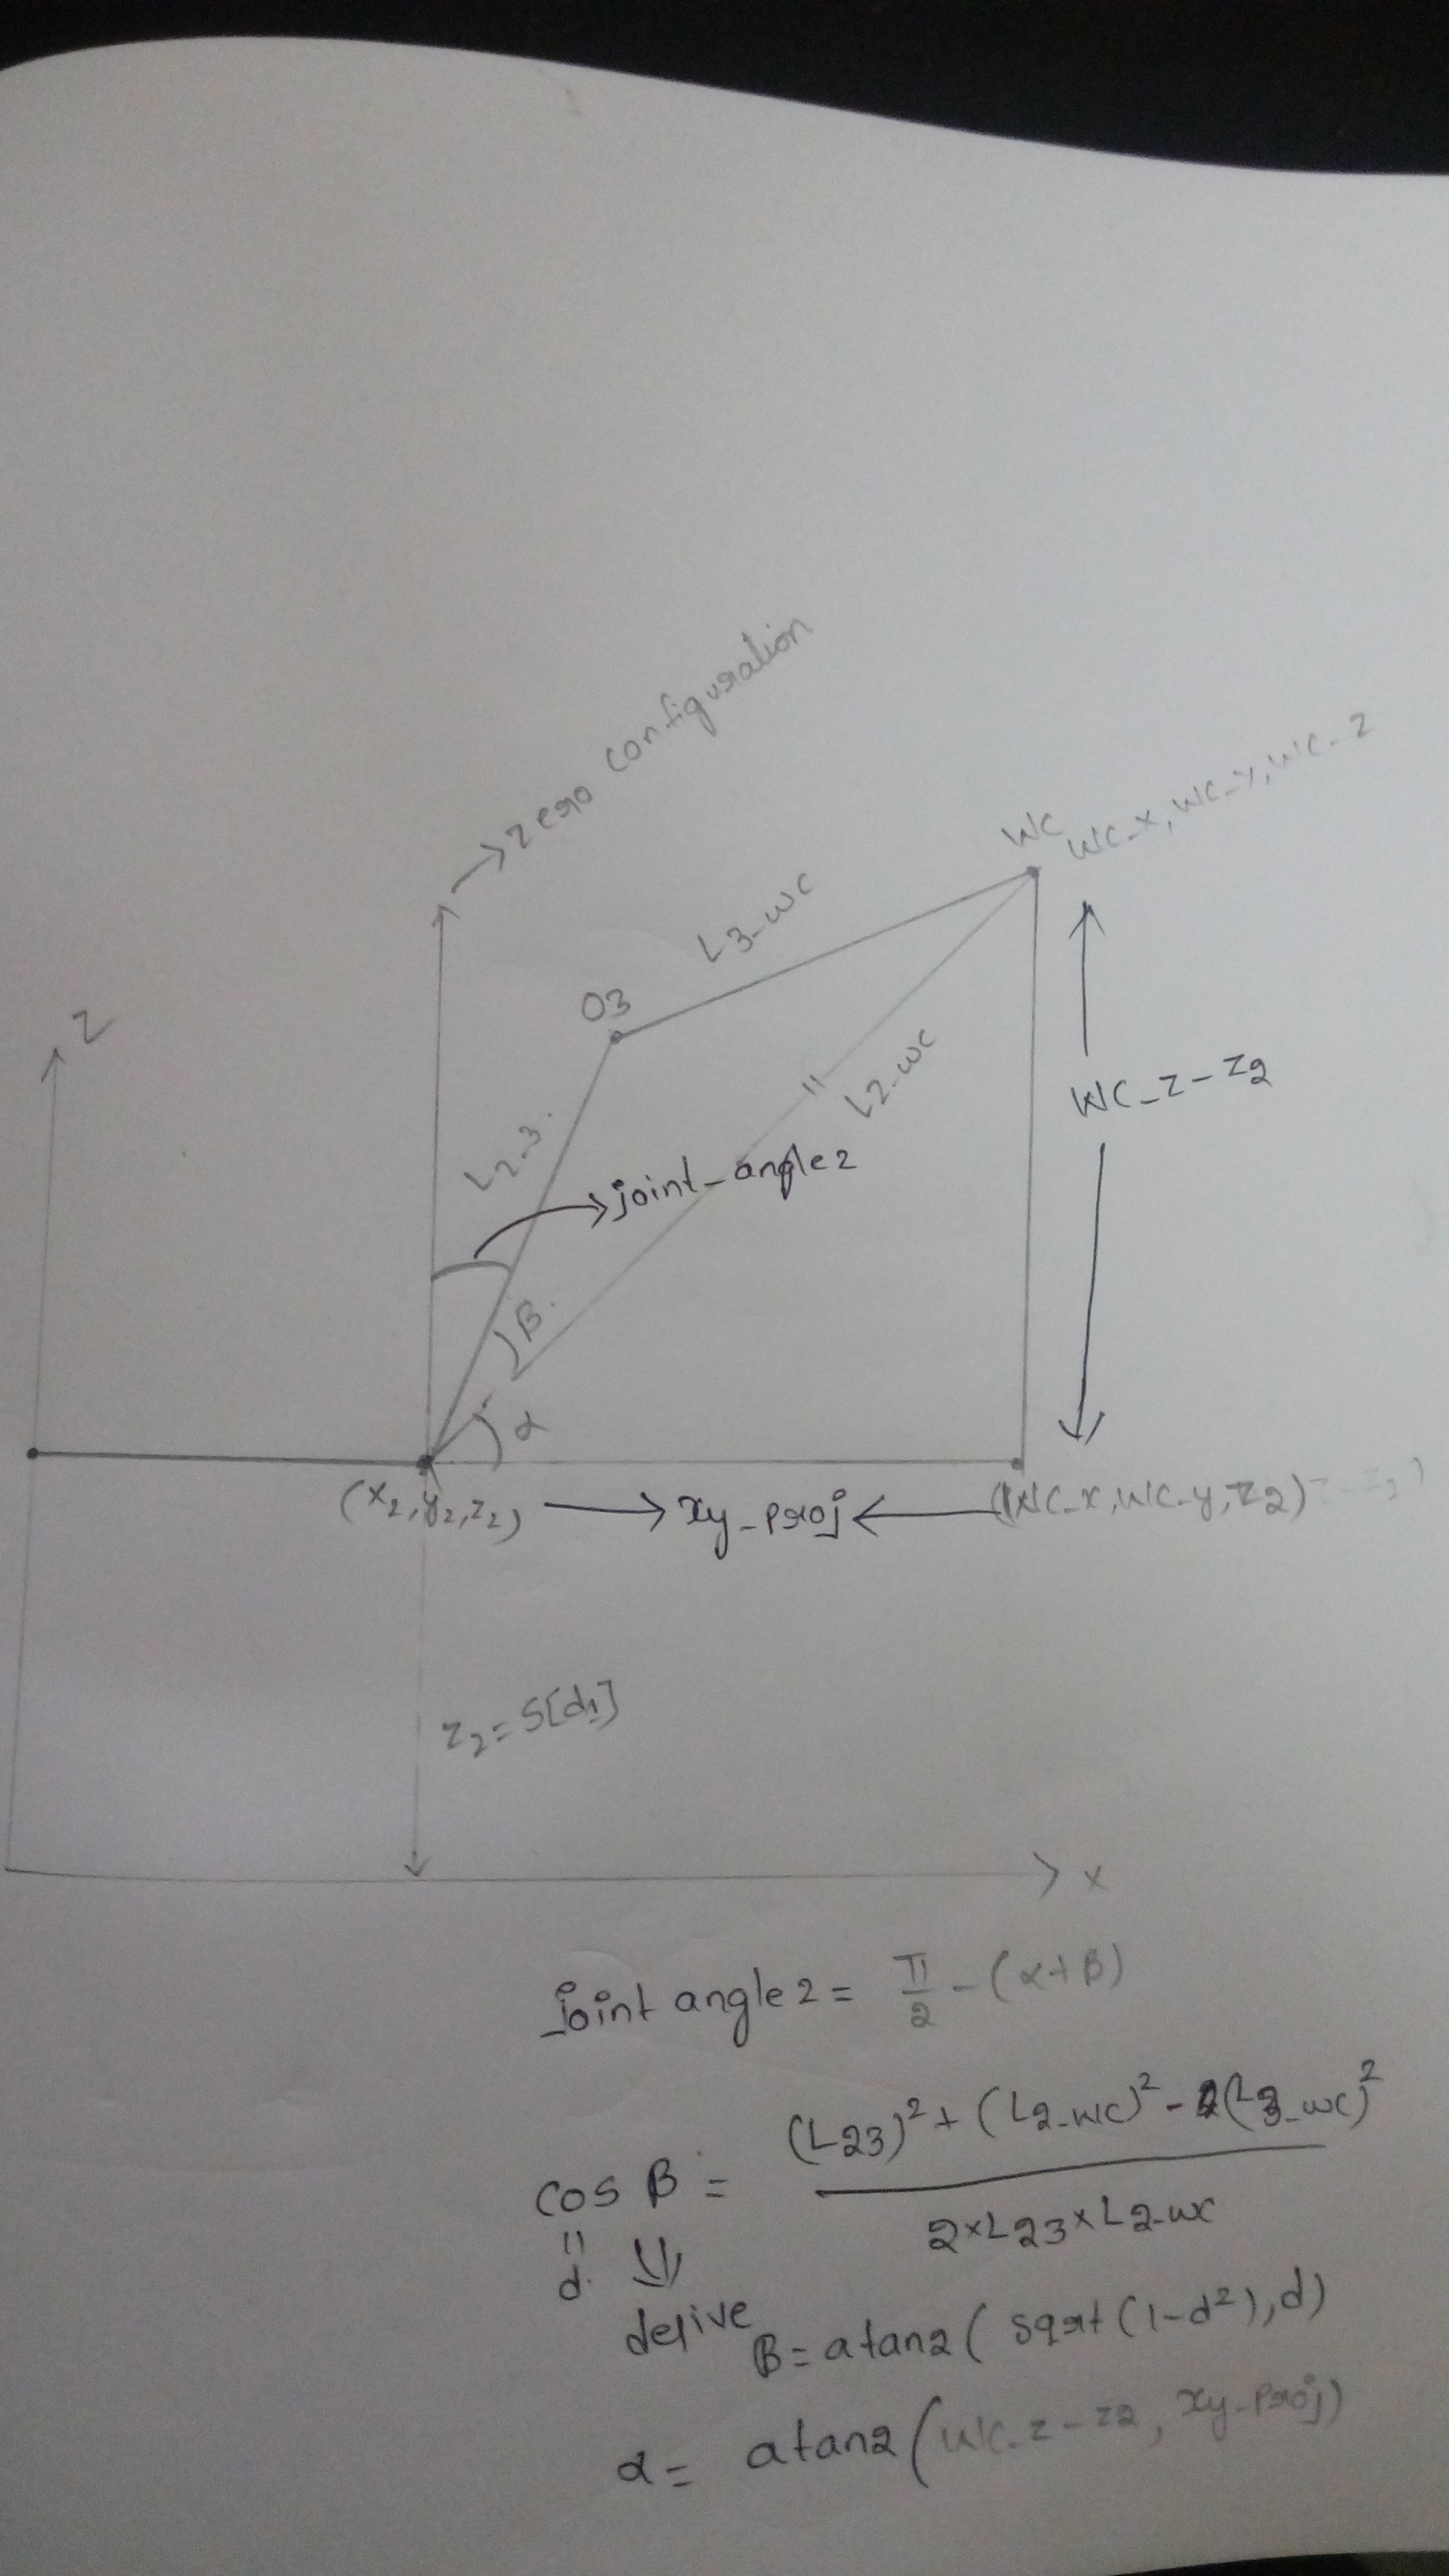 → zero configuration
WC WC_x, WC_y, WC_z
L3_WC
O3
Z
L2_WC
WC_z - z2
L2_3
joint_angle2
β
α
(x2, y2, z2) → xy_proj ← (WC_x, WC_y, z2)
z2 = S[d1]
x
joint angle 2 = π/2 - (α+β)
cos β = (L23)² + (L2_WC)² - (L3_WC)² / 2×L23×L2_WC
d
derive β = atan2(sqrt(1-d²), d)
α = atan2(WC_z - z2, xy_proj)